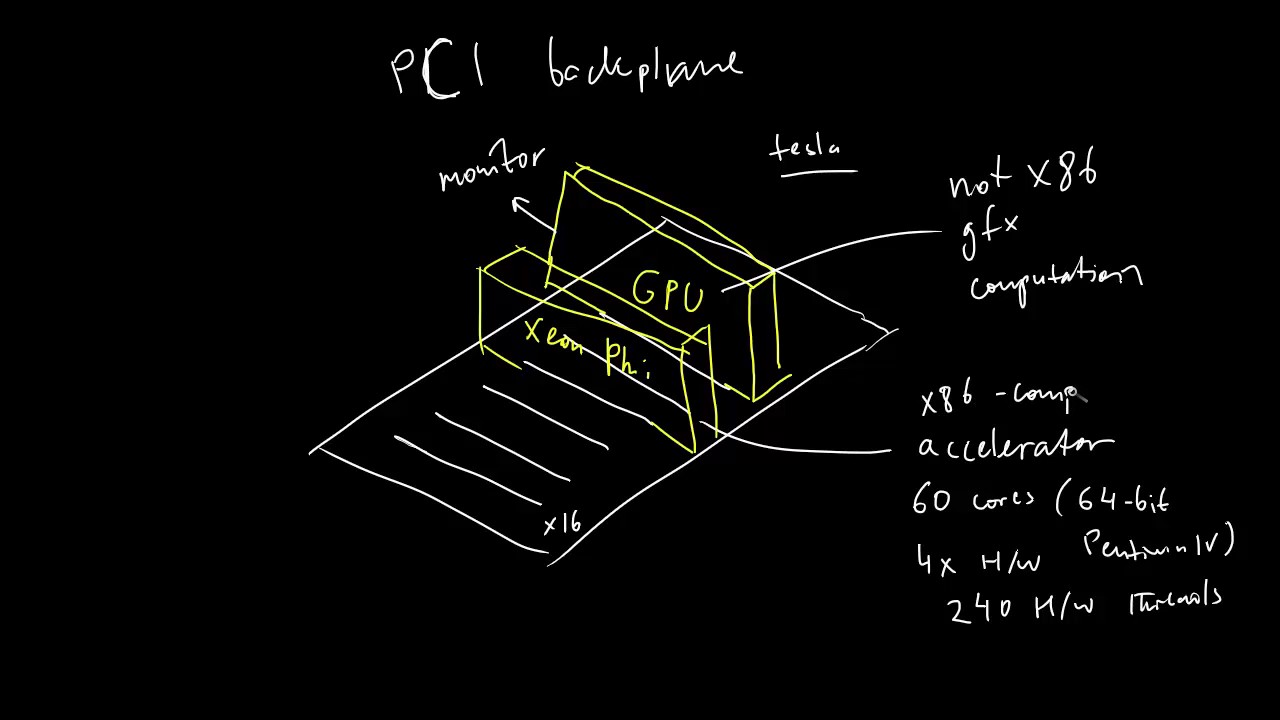 PCI backplane
monitor
tesla
not x86
gfx
computation
GPU
Xeon Phi
x86 - comp
accelerator
60 cores (64-bit
Pentium IV)
4x H/W
240 H/W threads
x16